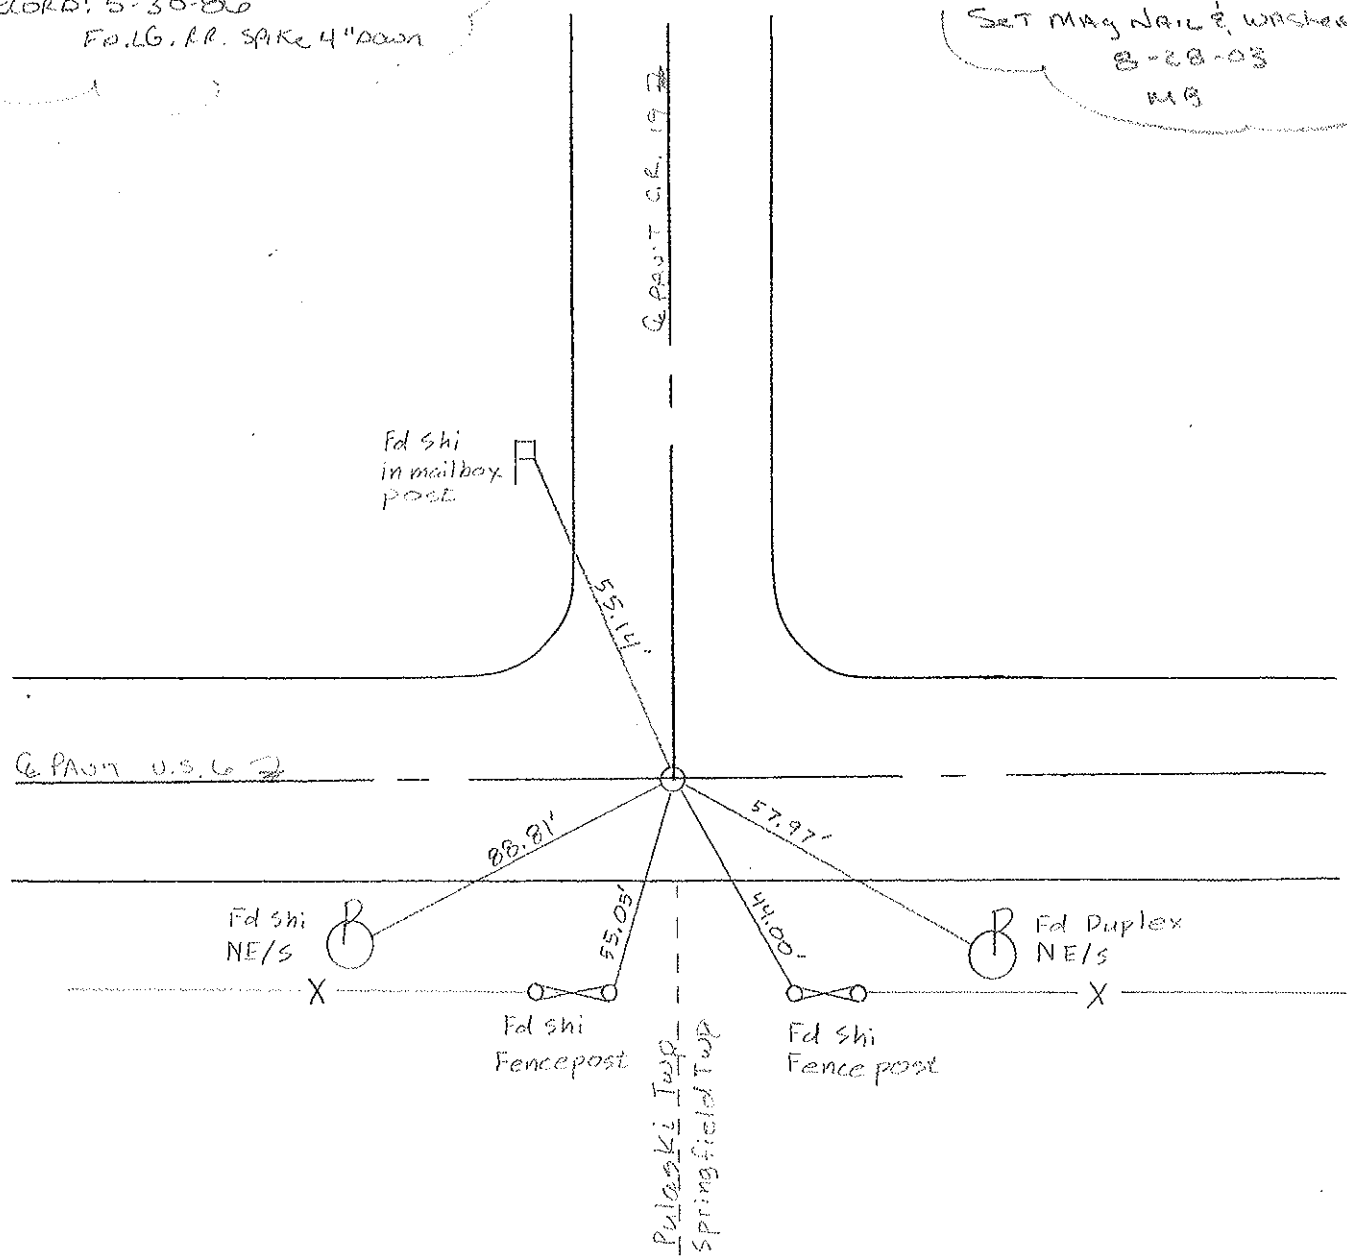 RECORD: 5-30-86
FD. LG. RR. SPIKE 4" DOWN
SET MAG NAIL & WASHER
8-28-03
MB
℄ PAV'T C.R. 19
Fd shi
in mailbox
post
55.14'
℄ PAV'T U.S. 6
88.81'
57.97'
55.05'
44.00'
Fd shi
NE/S
Fd Duplex
NE/S
X
X
Fd shi
Fencepost
Fd shi
Fence post
Pulaski Twp
Springfield Twp